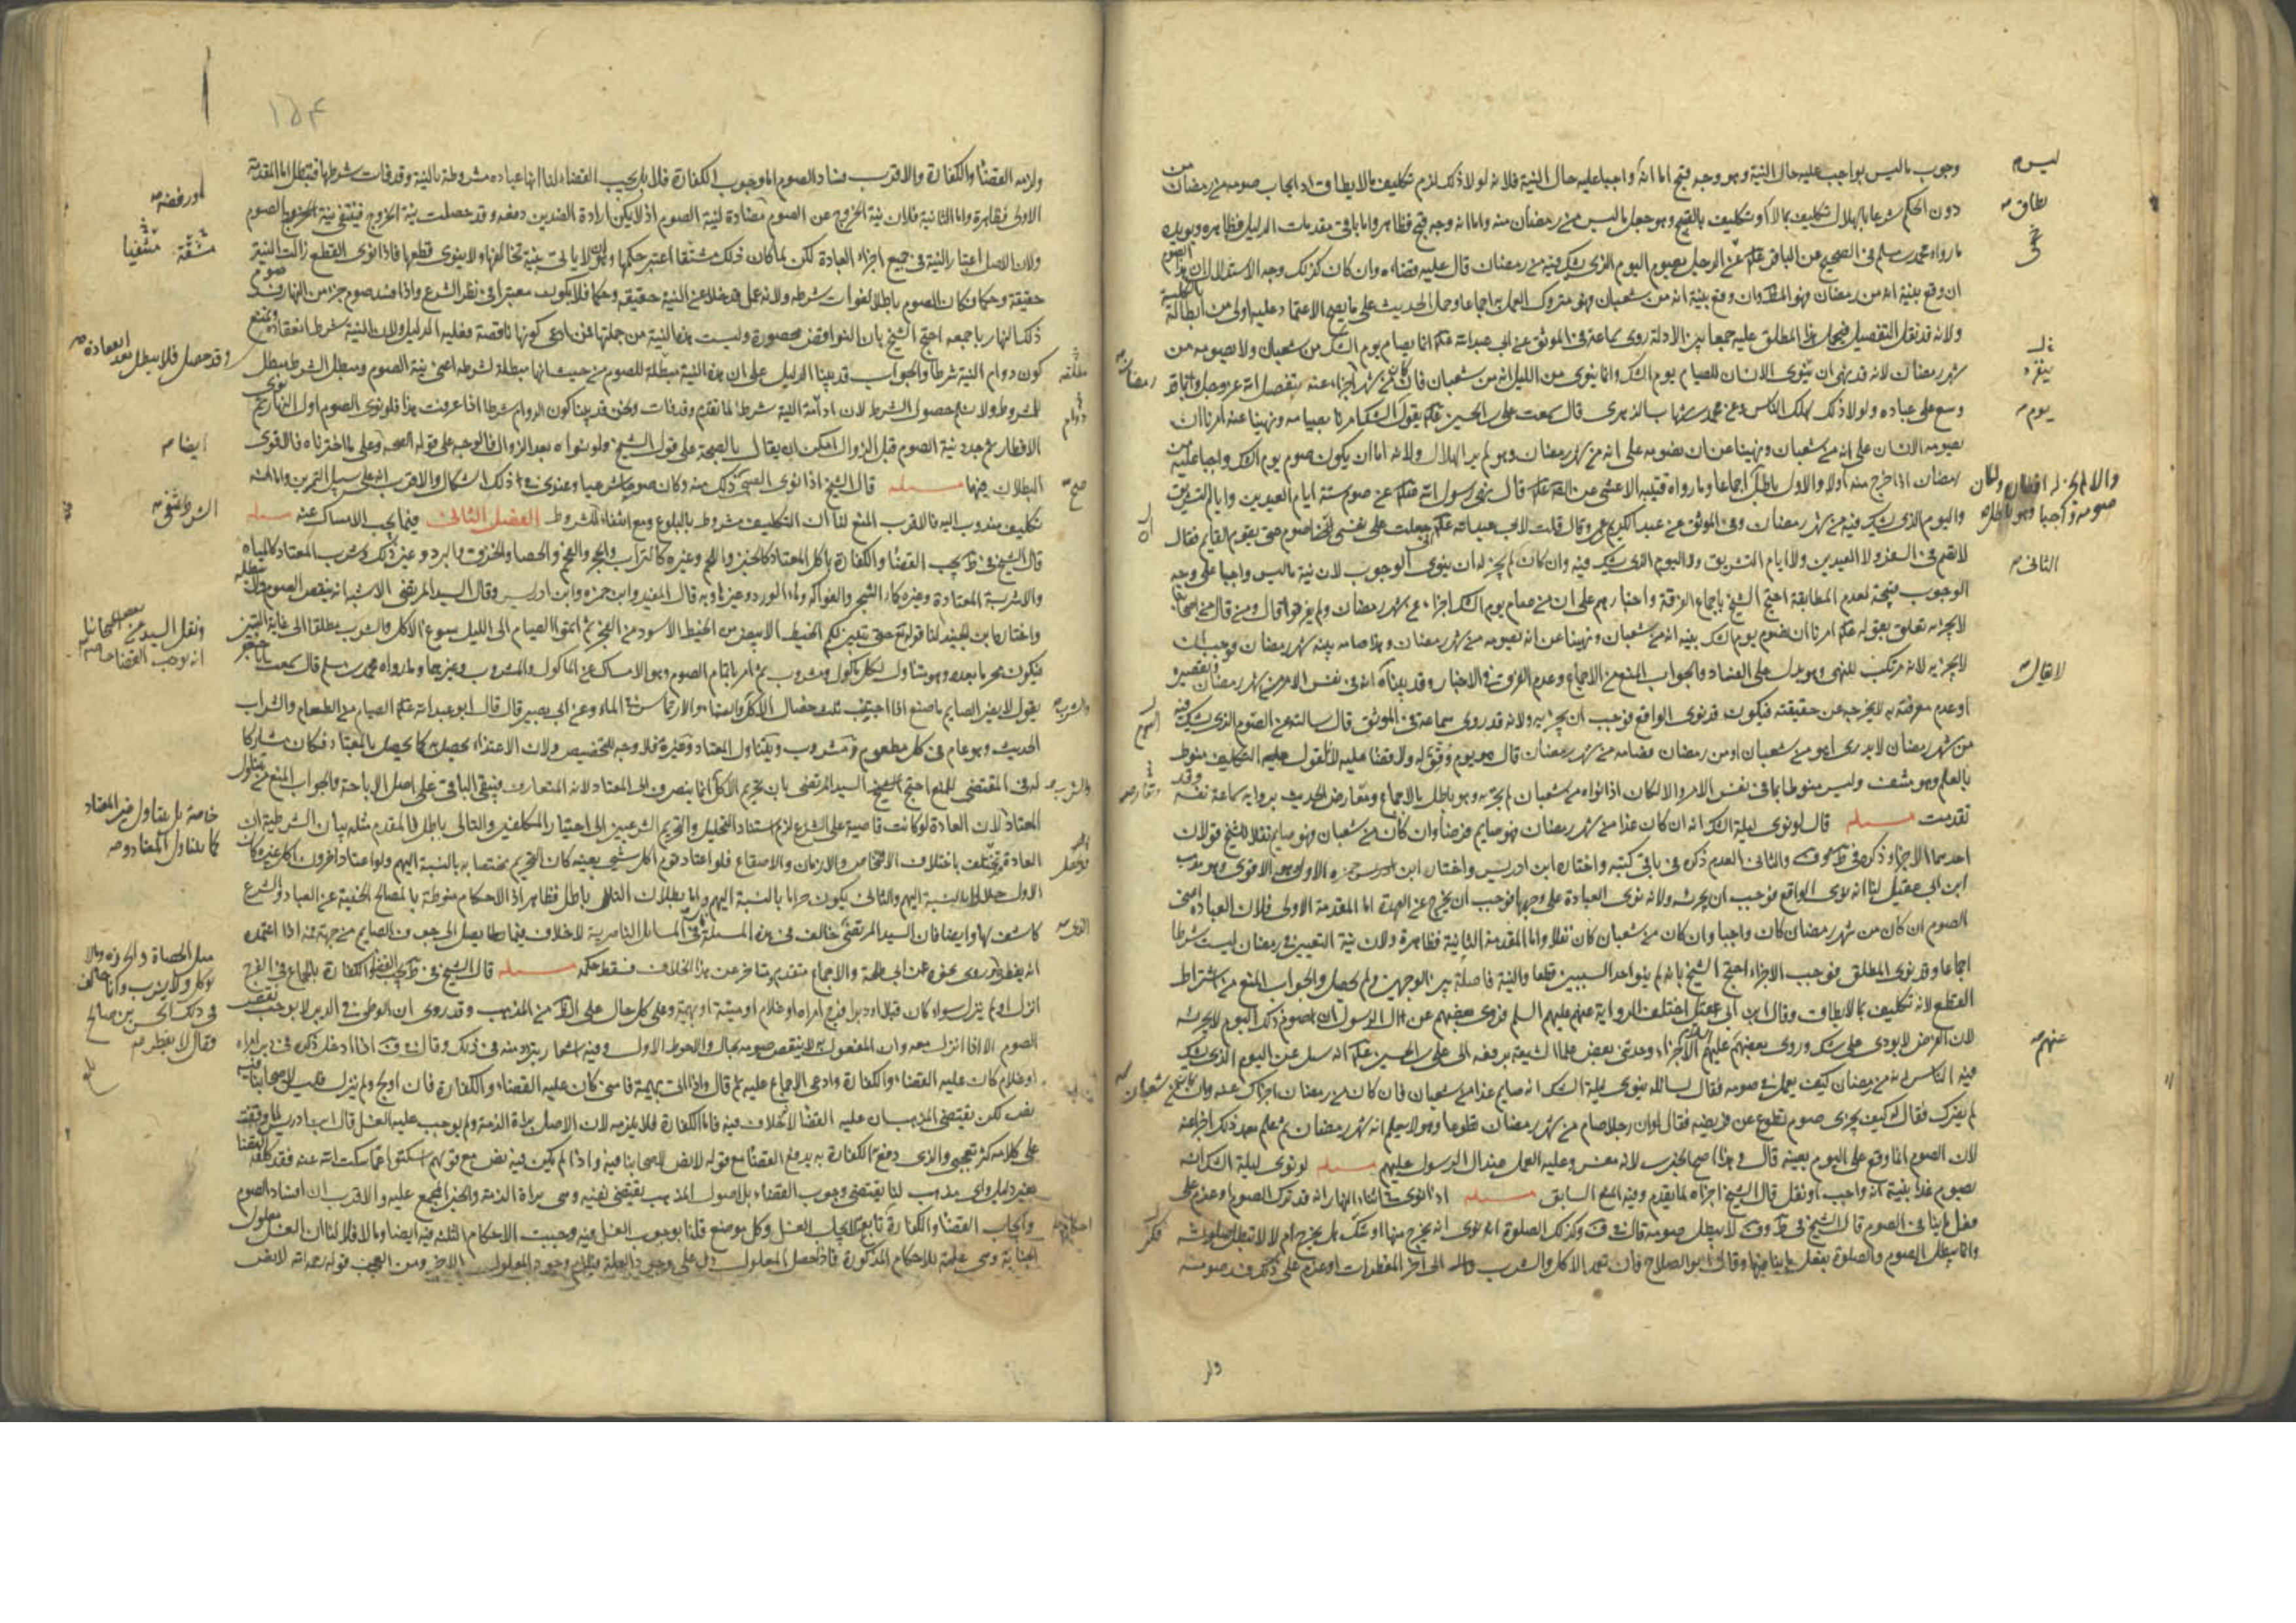 وجوب ما ليس بواجب عليه حال النية وهو وجه قبح اما انه واجبا عليه حال النية فلانه لولا ذلك لزم تكليف ما لا يطاق اذ ايجاب صومه من رمضان
دون الحكم شرعا بالهلال تكليف بما لا وتكليف بالقبيح وهو جعل ما ليس من رمضان منه واما انه وجه قبح فظاهر واما باقي مقدمات الدليل فظاهرة ويؤيده
ما رواه محمد بن مسلم في الصحيح عن الباقر في الرجل يصوم اليوم الذي يشك فيه من رمضان قال عليه قضاؤه وان كان كذلك وجه الاستدلال ان هذا الصوم
ان وقع بنية انه من رمضان فهو المطلوب وان وقع بنية انه من شعبان فهو متروك العمل به اجماعا وحمل الحديث على ما يصح الاعتماد عليه اولى من ابطاله بالكلية
ولانه قد نقل التفصيل فيحمل هذا المطلق عليه جمعا بين الادلة روى سماعة في الموثق عن ابي عبد الله انما يصام يوم الشك من شعبان ولا يصومه من
شهر رمضان لانه قد نهى ان ينوي الانسان للصيام يوم الشك وانما ينوي من الليل انه من شعبان فان كان من شهر رمضان اجزأ عنه بتفضل الله عز وجل وبما قد
وسع على عباده ولولا ذلك لهلك الناس وعن محمد بن شهاب الزهري قال سمعت علي بن الحسين يقول يوم الشك امرنا بصيامه ونهينا عنه امرنا ان
يصومه الانسان على انه من شعبان ونهينا عن ان نصومه على انه من شهر رمضان وهو لم ير الهلال ولانه اما ان يكون صوم يوم الشك واجبا عليه من
رمضان اذا خرج منه اولا والاول باطل اجماعا وما رواه قتيبة الاعشى عن الصادق قال نهى رسول الله عن صوم ستة ايام العيدين وايام التشريق
واليوم الذي يشك فيه من شهر رمضان وفي الموثق عن عبد الكريم بن عمرو قال قلت لابي عبد الله جعلت على نفسي ان اصوم حتى يقوم القائم فقال
لا تصم في السفر ولا العيدين ولا ايام التشريق ولا اليوم الذي يشك فيه وان كان لم يجز له ان ينوي الوجوب لان نية ما ليس واجبا على وجه
الوجوب قبيحة لعدم المطابقة احتج الشيخ باجماع الفرقة واخبارهم على ان من صام يوم الشك اجزأه عن شهر رمضان ولم يفرقوا قال ومن قال من اصحابنا
لا يجزيه تعلق بقوله امرنا ان نصوم يوم الشك بنية انه من شعبان ونهينا عن ان نصومه من شهر رمضان وهذا صامه بنية شهر رمضان فوجب ان
لا يجزيه لانه مرتكب للنهي وهو يدل على الفساد والجواب المنع من الاجماع وعدم الفرق في الاخبار وقد بيناه انه في نفس الامر من شهر رمضان وتقصيره
او عدم معرفته به لا يخرجه عن حقيقته فيكون قد نوى الواقع فوجب ان يجزيه ولانه قد روى سماعة في الموثق قال سألته عن اليوم الذي يشك فيه
من شهر رمضان لا يدرى اهو من شعبان او من رمضان فصامه من شهر رمضان قال هو يوم وفق له ولا قضاء عليه لانا نقول التكليف منوط
بالعلم وهو منتف وليس منوطا بما في نفس الامر والا لكان اذا نواه من شعبان لم يجزه وهو باطل بالاجماع ومتعارض الحديث برواية سماعة نفسه وقد
تقدمت مسئلة قال لو نوى ليلة الشك انه ان كان غدا من شهر رمضان فهو صايم فرضا وان كان من شعبان فهو صايم نفلا للشيخ قولان
احدهما الاجزاء ذكره في ط وف والثاني العدم ذكره في باقي كتبه واختاره ابن ادريس واختار ابن حمزه الاول وهو الاقوى وهو مذهب
ابن ابي عقيل لنا انه نوى الواقع فوجب ان يجزئه ولانه نوى العبادة على وجهها فوجب ان يخرج عن العهدة اما المقدمة الاولى فلان العبادة اعني
الصوم ان كان من شهر رمضان كان واجبا وان كان من شعبان كان نفلا واما المقدمة الثانية فظاهرة ولان نية التعيين في رمضان ليست شرطا
اجماعا وقد نوى المطلق فوجب الاجزاء احتج الشيخ بانه لم ينو احد السببين قطعا والنية فاصلة بين الوجهين ولم يحصل والجواب المنع من اشتراط
القطع لانه تكليف بما لا يطاق وقال ابن ابي عقيل اختلفت الرواية عنهم عليهم السلم فروى بعضهم عن ال الرسول ان صوم ذلك اليوم لا يجزئه
لان الفرض لا يؤدى على شك وروى بعضهم الاجزاء وحدثني بعض علماء الشيعة يرفعه الى علي بن الحسين انه سئل عن اليوم الذي يشك
فيه الناس انه من رمضان كيف يعمل في صومه فقال لسائله ينوي ليلة الشك انه صايم غدا من شعبان فان كان من رمضان اجزأك عنه وان كان من شعبان
لم يضرك فقال له كيف يجزى صوم تطوع عن فريضة فقال لو ان رجلا صام من شهر رمضان تطوعا وهو لا يعلم انه شهر رمضان ثم علم بعد ذلك اجزأ عنه
لان الصوم انما وقع على اليوم بعينه قال وهذا اصح الخبرين لانه مفسر وعليه العمل عند ال الرسول عليهم مسئلة لو نوى ليلة الشك انه
يصوم غدا بنية انه واجب او نفل قال الشيخ اجزاه لما تقدم وفيه المنع السابق مسئلة اذا نوى في اثناء النهار انه قد ترك الصوم او عزم على
فعل ما ينافي الصوم قال الشيخ في ط وف لا يبطل صومه قال في ف وكذلك الصلوة ان نوى انه يخرج منها او شك هل يخرج ام لا لا تبطل صلوته
وانما يبطل الصوم والصلوة بفعل ما ينافيها وقال ابو الصلاح فان تعمد الاكل والشرب الى اخر المفطرات او عزم على ذلك فسد صومه
ليس
يطاق
والا لم يجز له افطاره ولكان
صومه واجبا وهو باطل
الثاني
لا يقال
عنهم
ولز
١٥٤
ولزمه القضاء والكفارة والاقرب فساد الصوم اما وجوب الكفارة فلا بل يجب القضاء لنا انها عبادة مشروطة بالنية وقد فات شرطها فتبطل اما المقدمة
الاولى فظاهرة واما الثانية فلان نية الخروج عن الصوم مضادة لنية الصوم اذ لا يمكن ارادة الضدين دفعه وقد حصلت نية الخروج فينتفي نية الصوم
ولان الاصل اعتبار النية في جميع اجزاء العبادة لكن لما كان ذلك مشقا اعتبر حكمها وهو ان لا ياتي بنية تخالفها ولا ينوي قطعها فاذا نوى القطع زالت النية
حقيقة وحكما فكان الصوم باطلا لفوات شرطه ولانه عمل قد خلا عن النية حقيقة وحكما فلا يكون معتبرا في نظر الشرع واذا فسد صوم جزء من النهار فسد صوم
ذلك النهار باجمعه احتج الشيخ بان النواقض محصورة وليست هذه النية من جملتها فمن ادعى كونها ناقضة فعليه الدليل ولان النية شرط انعقاده ونمنع
كون دوام النية شرطا والجواب قد بينا الدليل على ان هذه النية مبطلة للصوم من حيث انها مبطلة لشرطه اعني نية الصوم ومبطل الشرط مبطل
للمشروط ولا نسلم حصول الشرط لان ادامة النية شرط لما تقدم وقد فات ونحن قد بينا كون الدوام شرطا اذا عرفت هذا فلو نوى الصوم اول النهار ثم نوى
الافطار ثم جدد نية الصوم قبل الزوال امكن ان يقال بالصحة على قول الشيخ ولو نواه بعد الزوال فالوجه على قوله الصحة وعلى ما اخترناه فالاقوى
البطلان فيهما مسئلة قال الشيخ اذا نوى الصبي ذلك منه وكان صومه شرعيا وعندي في ذلك اشكال والاقرب انه على سبيل التمرين واما انه
تكليف مندوب اليه فالاقرب المنع لنا ان التكليف مشروط بالبلوغ ومع انتفاء الشرط الفصل الثاني فيما يجب الامساك عنه مسئلة
قال الشيخ في ط يجب القضاء والكفارة باكل المعتاد كالخبز واللحم وغيره كالتراب والحجر والفحم والحصا والخزف والبرد وغير ذلك وشرب المعتاد كالمياه
والاشربة المعتادة وغيره كماء الشجر والفواكه وماء الورد وغيرها وبه قال المفيد وابن حمزه وابن ادريس وقال السيد المرتضى الاشبه انه ينقض الصوم ولا يبطله
واختاره ابن الجنيد لنا قوله تع حتى يتبين لكم الخيط الابيض من الخيط الاسود من الفجر ثم اتموا الصيام الى الليل سوغ الاكل والشرب مطلقا الى غاية التبيين
فيكون محرما بعده وهو يتناول لكل ماكول ومشروب ثم امر باتمام الصوم وهو الامساك عن الماكول والمشروب وغيرهما ولما رواه محمد بن مسلم قال سمعت ابا جعفر
يقول لا يضر الصايم ما صنع اذا اجتنب ثلث خصال الاكل والنساء والارتماس في الماء وعن ابي بصير قال قال ابو عبد الله الصيام من الطعام والشراب
الحديث وهو عام في كل مطعوم ومشروب ويتناول المعتاد وغيره فلا وجه للتخصيص ولان الاغتذاء يحصل به كما يحصل بالمعتاد فكان مشاركا
له في المقتضي للمنع احتج السيد المرتضى بان تحريم الاكل انما ينصرف الى المعتاد لانه المتعارف فيبقى الباقي على اصل الاباحة والجواب المنع من تناول
المعتاد لان العادة لو كانت قاضية على الشرع لزم استناد التحليل والتحريم الشرعيين الى اختيار المكلفين والتالي باطل فالمقدم مثله بيان الشرطية ان
العادة تختلف باختلاف الاشخاص والازمان والاصقاع فلو اعتاد قوم اكل شيء بعينه كان التحريم مختصا به بالنسبة اليهم ولو اعتاد اخرون اكل غيره كان
الاول حلالا بالنسبة اليهم والثاني يكون حراما بالنسبة اليهم واما بطلان التالي فظاهر اذ الاحكام منوطة بالمصالح الخفية عن العباد والشرع
كاشف لها وايضا فان السيد المرتضى خالف في هذه المسئلة في المسائل الناصرية لا خلاف فيما يصل الى جوف الصايم من جهة فمه اذا اعتمده
انه يفطر وروى نحوه عن ابي طلحة والاجماع متقدم متاخر عن هذا الخلاف فسقط حكمه مسئلة قال الشيخ في ط يجب القضاء والكفارة بالجماع في الفرج
انزل او لم ينزل سواء كان قبلا او دبرا فرج امراه او غلام او ميتة او بهيمة وعلى كل حال على الظاهر من المذهب وقد روى ان الوطئ في الدبر لا يوجب نقض
الصوم الا اذا انزل معه وان المفعول به لا ينقض صومه بحال والاحوط الاول وقال في ف اذا ادخل ذكره في دبر امراه
او غلام كان عليه القضاء والكفارة وادعى الاجماع عليه ثم قال واذا اتى بهيمة فامنى كان عليه القضاء والكفارة فان اولج ولم ينزل فليس لاصحابنا فيه
نص لكن يقتضي المذهب ان عليه القضاء لانه لا خلاف فيه فاما الكفارة فلا يلزمه لان الاصل براءة الذمة ولم يوجب عليه الغسل قال ابن ادريس لما وقفت
على كلامه كثر تعجبي والذي دفع به الكفارة به يدفع القضاء مع قوله لا نص لاصحابنا فيه واذا لم يكن فيه نص مع قولهم اسكتوا عما سكت الله عنه فقد كلفه القضاء
بغير دليل واي مذهب لنا يقتضي وجوب القضاء بل اصول المذهب يقتضي نفيه وهي براءة الذمة والخبر المجمع عليه والاقرب ان افساد الصوم
وايجاب القضاء والكفارة تابع لايجاب الغسل وكل موضع قلنا بوجوب الغسل فيه وجبت الاحكام الثلثة فيه ايضا وما لا فلا لنا ان الغسل معلول
الجنابة وهي علة للاحكام المذكورة فاذا حصل المعلول دل على وجود العلة فيلزم وجود المعلول الاخر ومن العجب قوله رحمه الله لا نص
او رفضه
مشقة منتفيا
وقد حصل فلا يبطل بعد انعقاده
ايضا
الشرط ينتفي
ونقل السيد عن بعض اصحابنا
انه يوجب القضاء خاصة
خاصة بل يتناول غير المعتاد
كما يتناول المعتاد
مثل الحصاة والخرزة وما لا
يؤكل ولا يشرب وانما خالف
في ذلك الحسن بن صالح
وقال لا يفطر